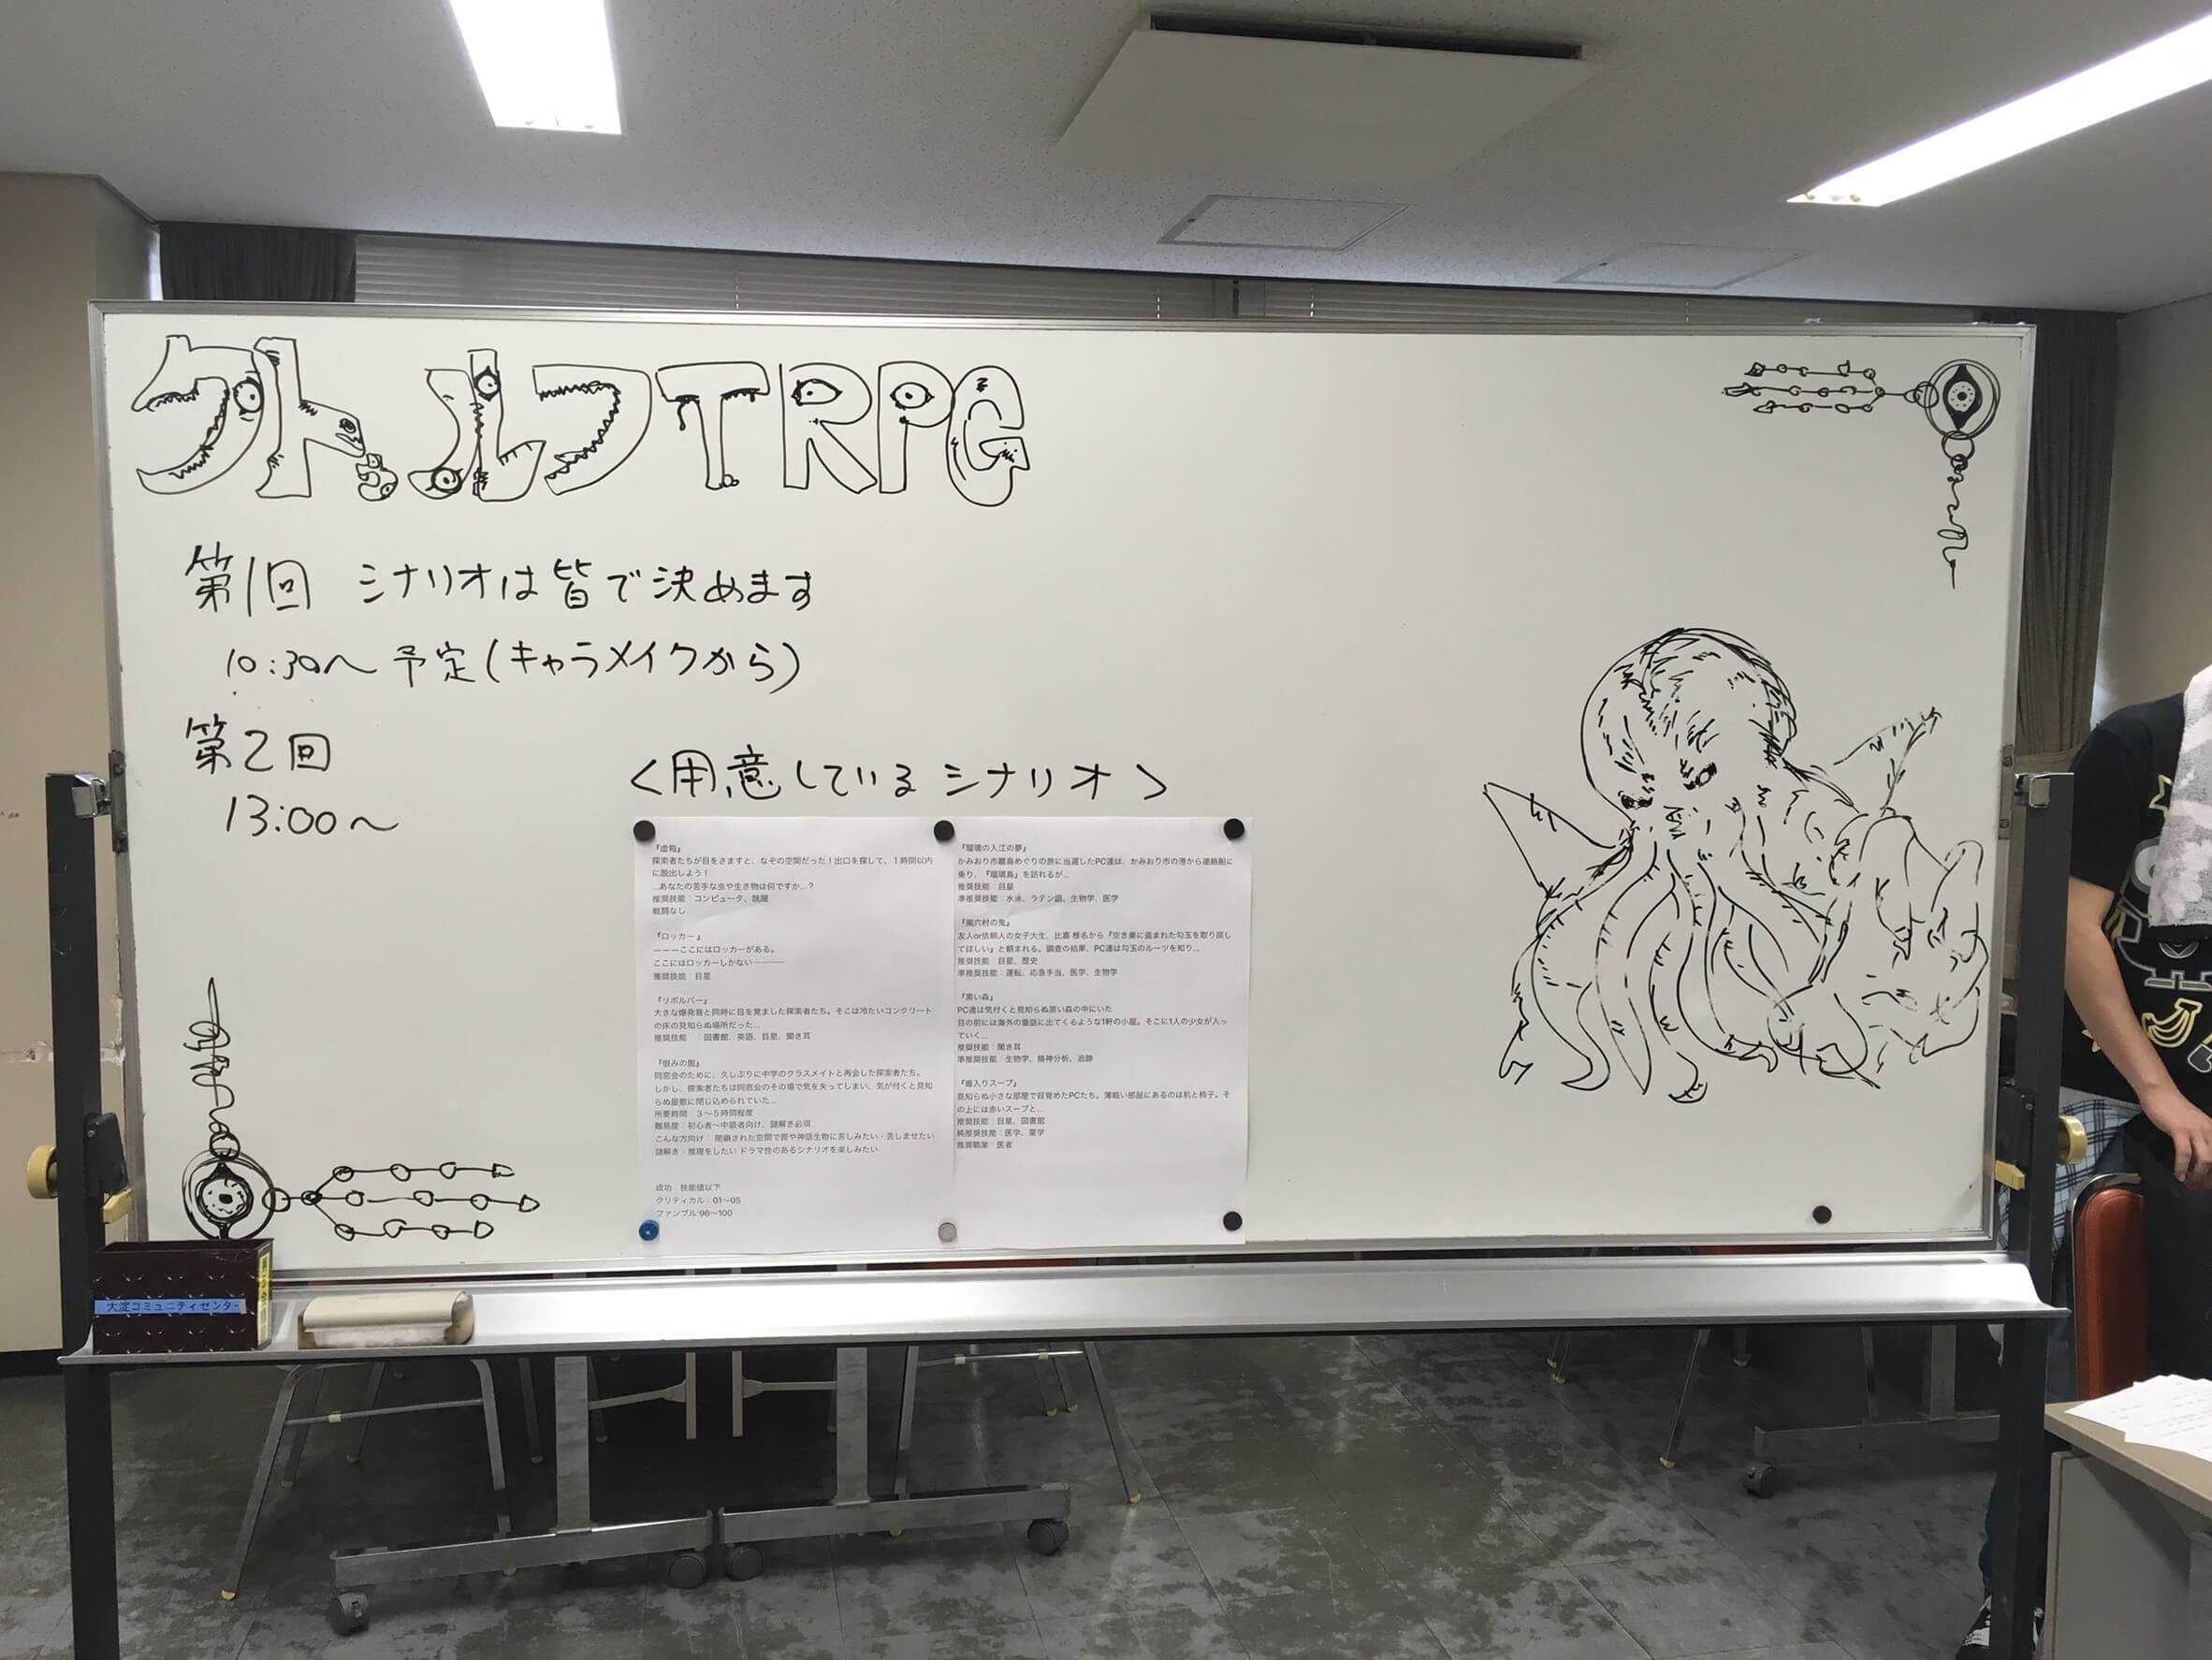 クトゥルフTRPG
第1回 シナリオは皆で決めます
10:30〜 予定(キャラメイクから)
第2回
13:00〜
<用意しているシナリオ>
『虚箱』
探索者たちが目をさますと、なぞの空間だった！出口を探して、１時間以内
に脱出しよう！
…あなたの苦手な虫や生き物は何ですか…？
推奨技能：コンピュータ、跳躍
戦闘なし
『ロッカー』
ーーーここにはロッカーがある。
ここにはロッカーしかない————
推奨技能：目星
『リボルバー』
大きな爆発音と同時に目を覚ました探索者たち。そこは冷たいコンクリート
の床の見知らぬ場所だった…
推奨技能　：図書館、英語、目星、聞き耳
『恨みの館』
同窓会のために、久しぶりに中学のクラスメイトと再会した探索者たち。
しかし、探索者たちは同窓会のその場で気を失ってしまい、気が付くと見知
らぬ屋敷に閉じ込められていた…
所要時間：３〜５時間程度
難易度：初心者〜中級者向け、謎解き必須
こんな方向け：閉鎖された空間で罠や神話生物に苦しみたい・苦しませたい
謎解き・推理をしたい ドラマ性のあるシナリオを楽しみたい
成功：技能値以下
クリティカル：01〜05
ファンブル:96〜100
『瑠璃の入江の夢』
かみおり市離島めぐりの旅に当選したPC達は、かみおり市の港から連絡船に
乗り、『瑠璃島』を訪れるが…
推奨技能：目星
準推奨技能：水泳、ラテン語、生物学、医学
『風穴村の鬼』
友人or依頼人の女子大生、比嘉 椎名から『空き巣に盗まれた勾玉を取り戻し
てほしい』と頼まれる。調査の結果、PC達は勾玉のルーツを知り…
推奨技能：目星、歴史
準推奨技能：運転、応急手当、医学、生物学
『黒い森』
PC達は気付くと見知らぬ黒い森の中にいた
目の前には海外の童話に出てくるような1軒の小屋。そこに1人の少女が入っ
ていく…
推奨技能：聞き耳
準推奨技能：生物学、精神分析、追跡
『毒入りスープ』
見知らぬ小さな部屋で目覚めたPCたち。薄暗い部屋にあるのは机と椅子。そ
の上には赤いスープと…
推奨技能：目星、図書館
純推奨技能：医学、薬学
推奨職業：医者
大淀コミュニティセンター